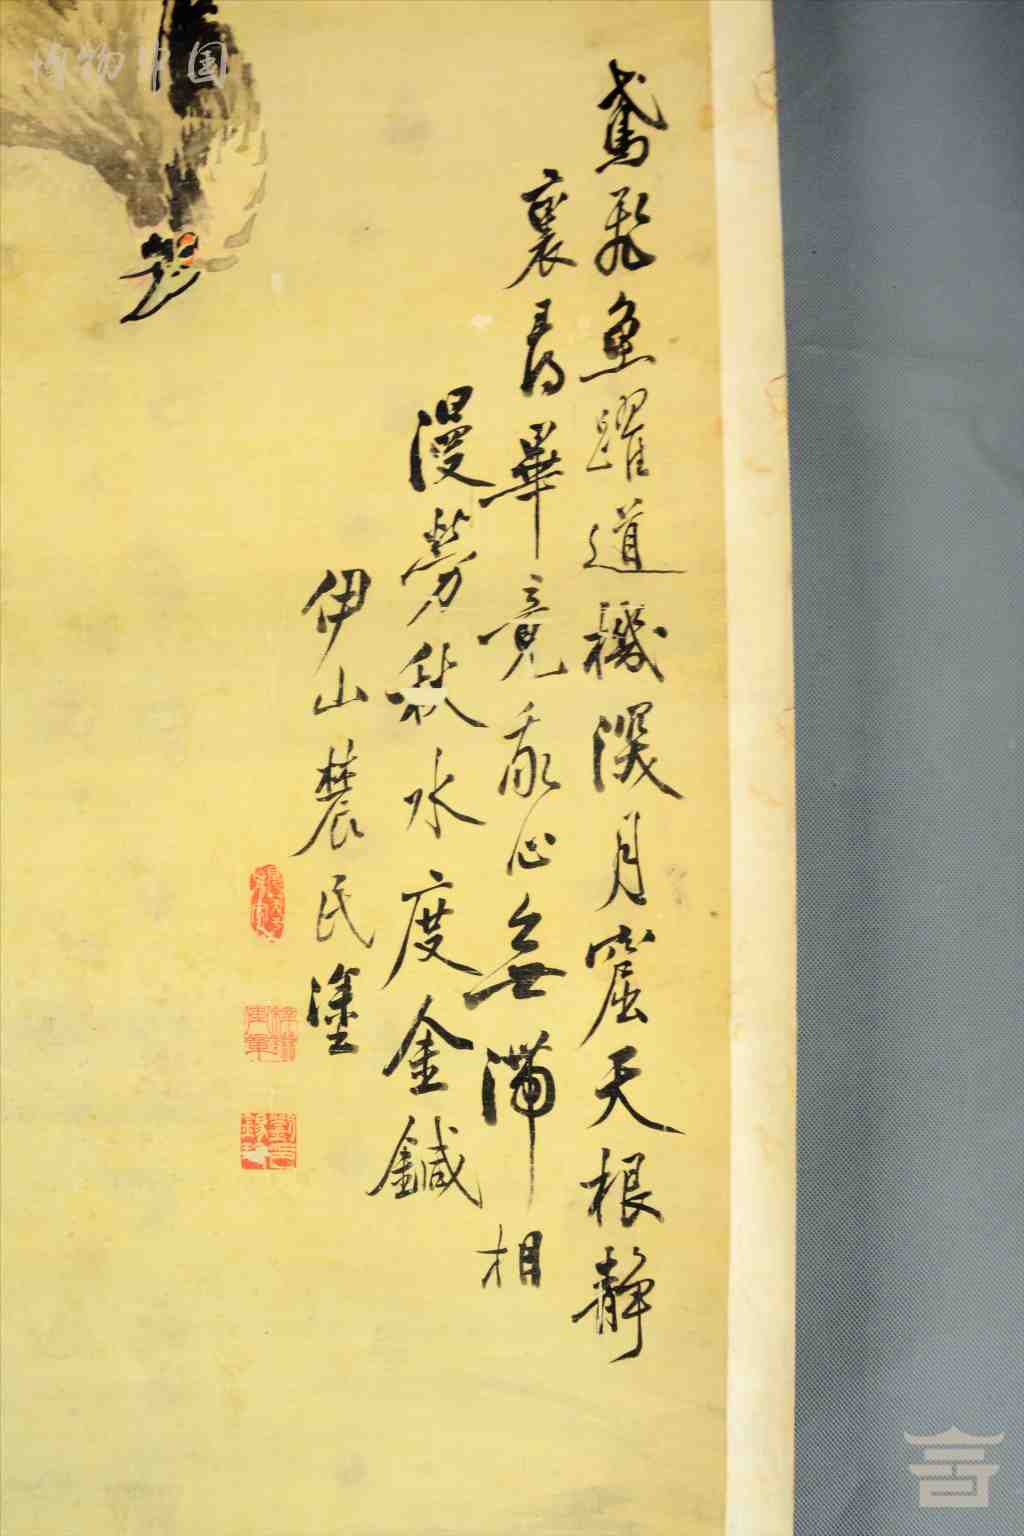 鳶飛魚躍道機深月窟天根静
裏尋畢竟我心無滯相
漫勞秋水度金鍼
伊山農民塗
博物中国